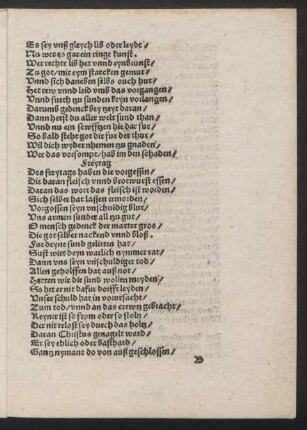 Es sey vnß gleych lib oder leydt/
Nu wer es gar ein ringe kunst.
Wer rechte lib het vnnd eynbrunst/
Zu got/ mit eym starcken gemut/
Vnnd sich daneben selbs ouch hut/
Het rew vnnd leid vms das vorgangen/
Vnnd furth zu sunden keyn vorlangen/
Darumb gedenck bey zeyt daran/
Dann hetst du aller welt sund than/
Vnnd nu ein sewfftzen hie dar fur/
So bald stehe got dir fur der thur/
Wil dich wyder nhemen zu gnaden/
Wer das vorsompt/ hab im den schaden/
Freytag
Des freytags haben die vorgessen/
Die daran fleisch vnnd brotwurst essen/
Daran das wort das fleisch ist worden/
Sich selber hat lassen ermorden/
Vorgossen seyn vnschuldig blut/
Vns armen sunder all zu gut/
O mensch gedenck der marter gros/
Die got selber nackend vnnd bloß.
Fur deyne sund gelitten hat/
Sust wirt deyn warlich nymmer rat/
Dann vns seyn vnschuldiger tod/
Allen geholffen hat auß not/
Hetten wir die sund wollen meyden/
So het er nit dafur dorffe leyden/
Vnser schuld hat in vorursacht/
Zum tod/ vnnd an das crewtz gebracht/
Keyner ist so from oder so stoltz/
Der nit erlost sey durch das holtz/
Daran Christus genagelt ward/
Er sey ehlich oder basthard/
Gantz nymant do von auß geschlossen/